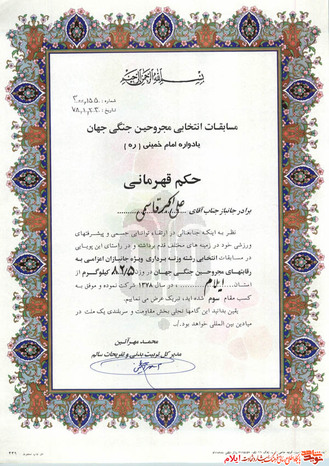 بسم الله الرحمن الرحیم
شماره :
تاریخ :
مسابقات انتخابی مجروحین جنگی جهان
یادواره امام خمینی (ره)
حکم قهرمانی
برادر جانباز جناب آقای علی اکبر قاسمی
نظر به اینکه جنابعالی در ارتقاء توانایی جسمی و پیشرفتهای
ورزشی خود در زمینه های مختلف قدم برداشته و در راستای این پویایی
در مسابقات انتخابی رشته وزنه برداری ویژه جانبازان اعزامی به
رقابتهای مجروحین جنگی جهان در وزن ۸۲/۵ کیلوگرم از
استان ایلام در سال ۱۳۷۸ شرکت نموده و موفق به
کسب مقام سوم شده اید، تبریک عرض می نمایم.
یقین بدانید این گامها تجلی بخش مقاومت و سربلندی یک ملت در
میادین بین المللی خواهد بود./
محمد مهرآئین
مدیر کل تربیت بدنی و تفریحات سالم
ایلام